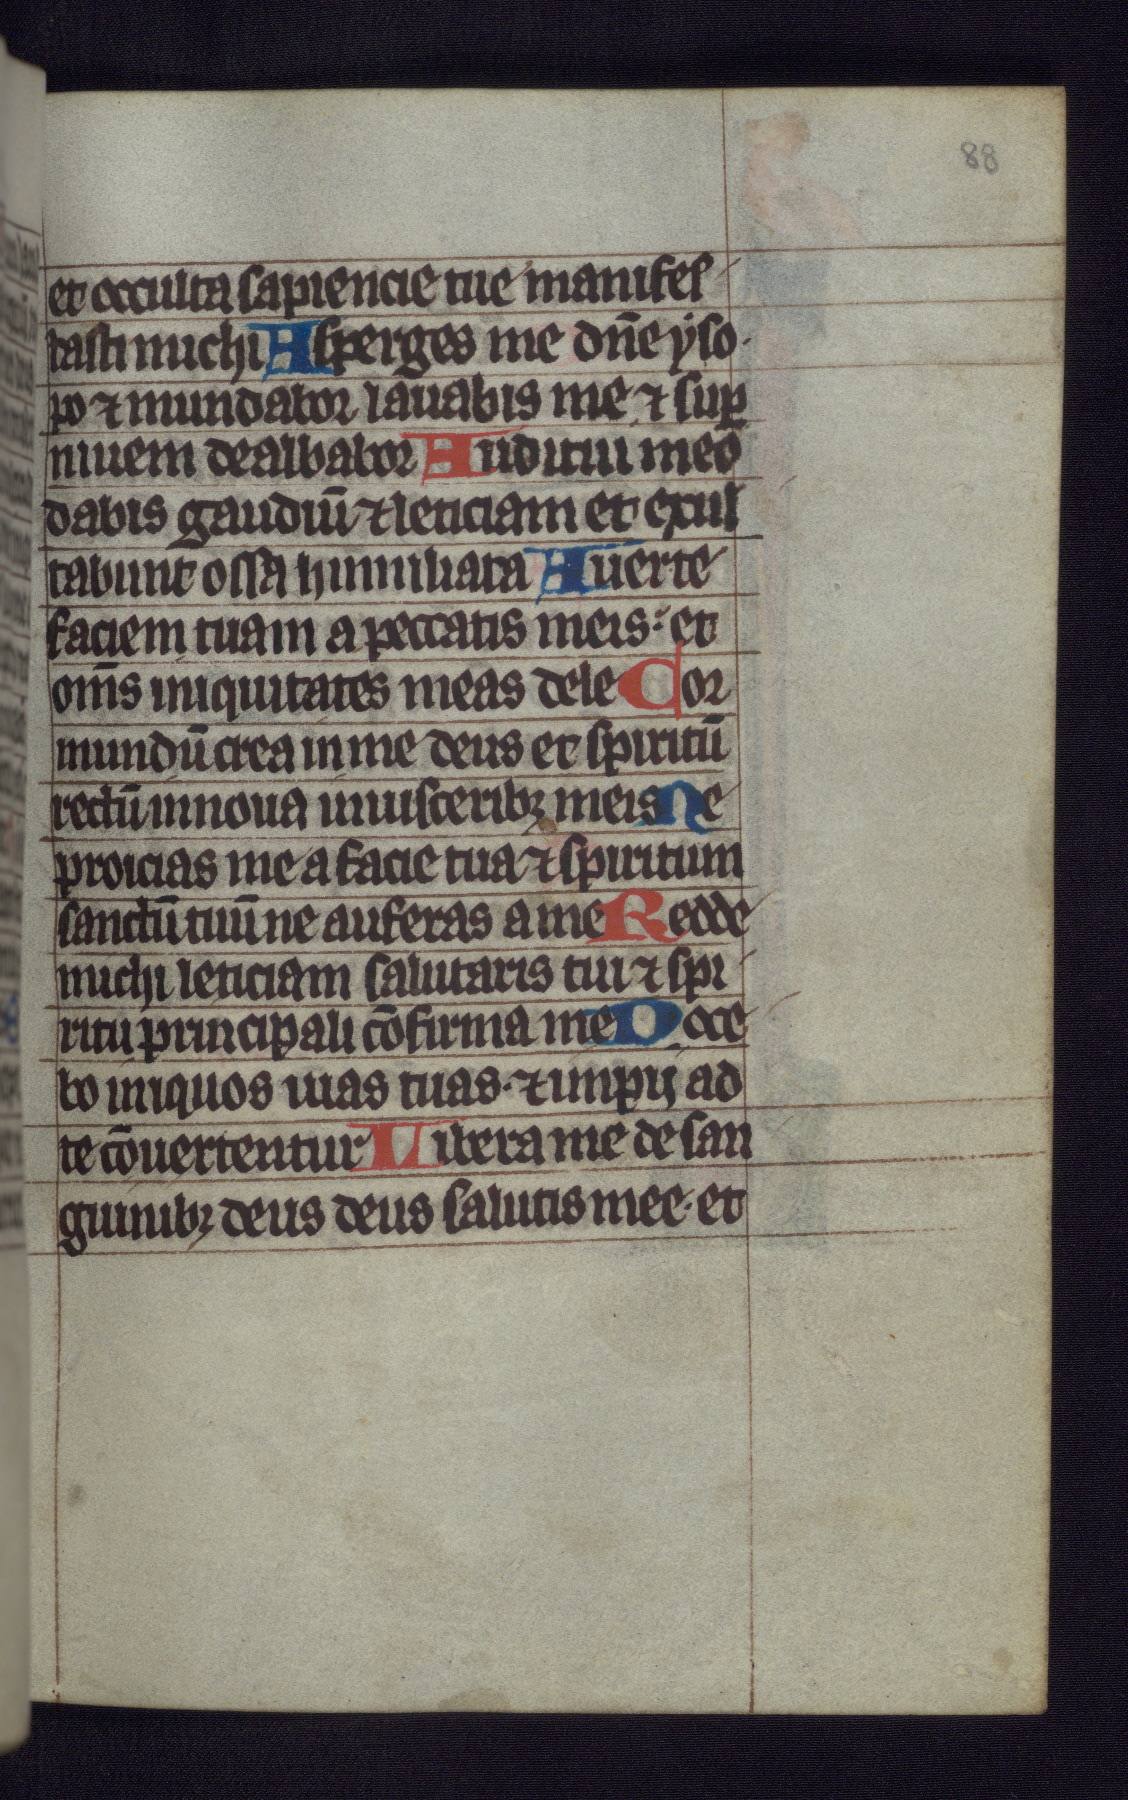 88
et occulta sapiencie tue manifes
tasti michi Asperges me dn̄e yso
po ⁊ mundabor lauabis me ⁊ sup̲
niuem dealbabor Auditui meo
dabis gaudiū ⁊ leticiam et exul
tabunt ossa humiliata Auerte
faciem tuam a peccatis meis: et
om̄s iniquitates meas dele Cor
mundū crea in me deus et spiritū
rectū innoua in uisceribꝫ meis Ne
proicias me a facie tua ⁊ spiritum
sanctū tuū ne auferas a me Redde
michi leticiam salutaris tui ⁊ spi
ritu principali cōfirma me Doce
bo iniquos uias tuas · ⁊ impij ad
te cōuertentur Libera me de san
guinibꝫ deus deus salutis mee · et